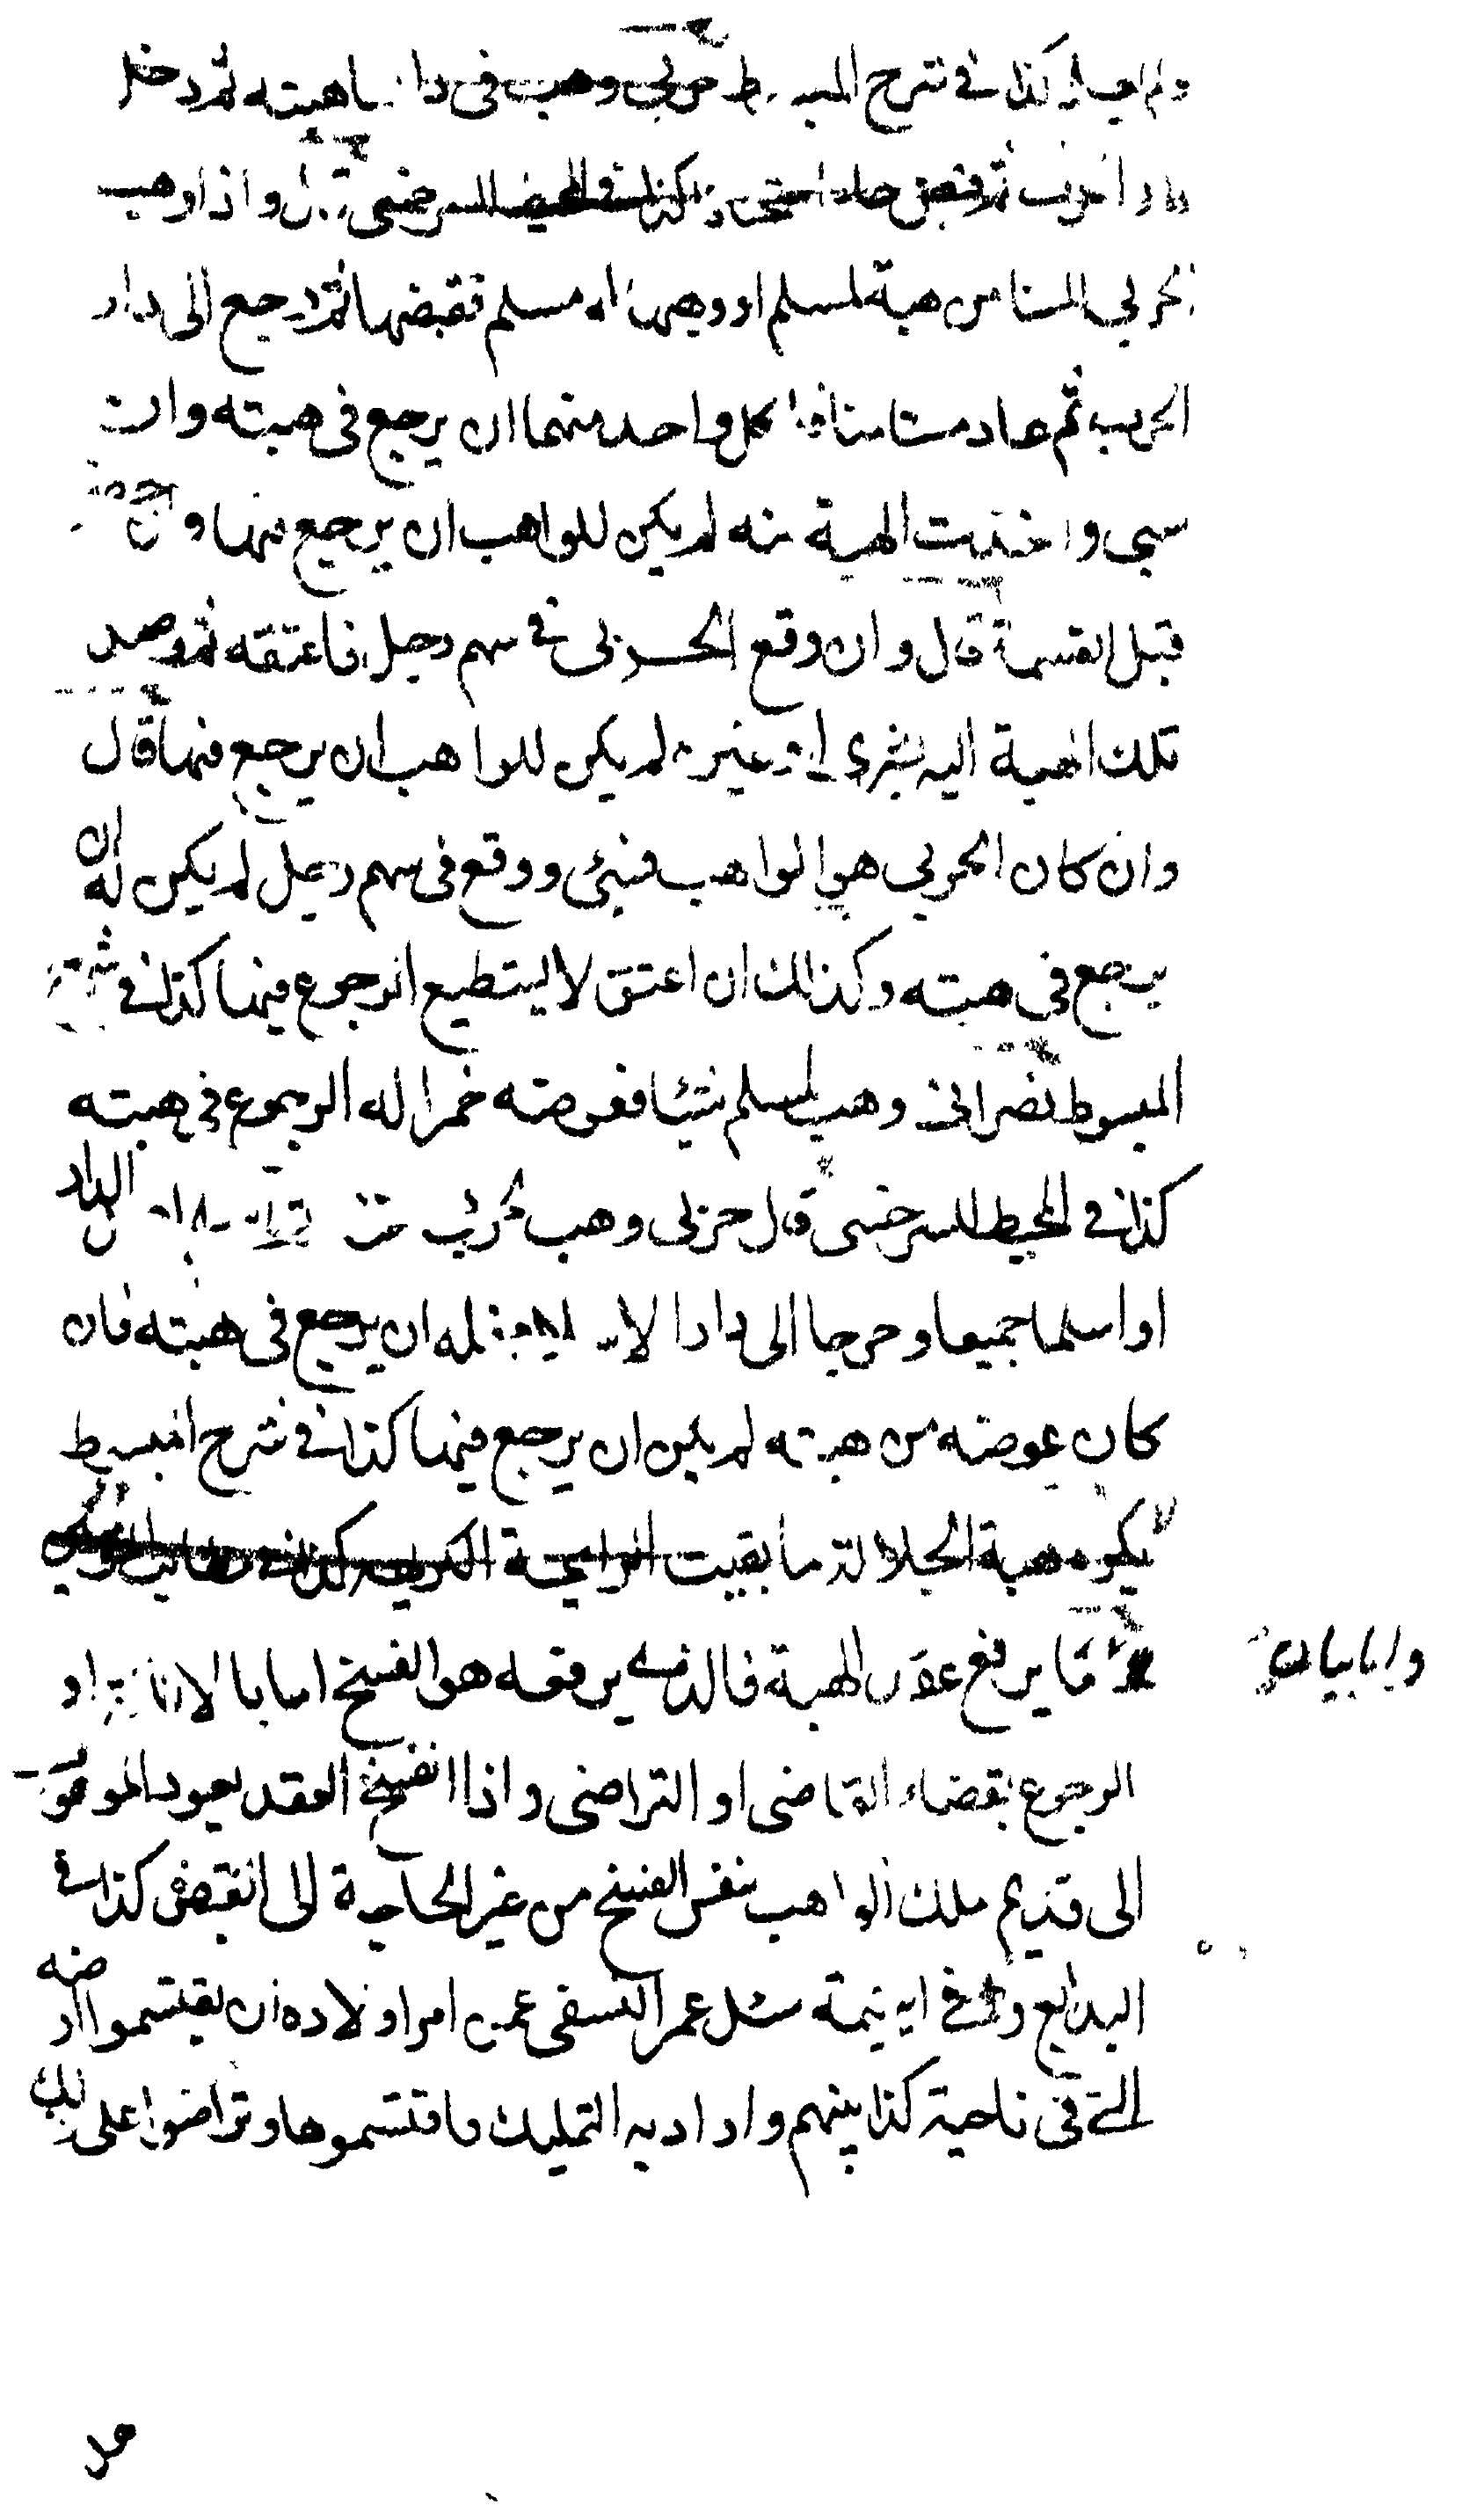 كذا فى شرح المبسوط حربى وهب فى دارنا هبته ثم دخل
دار الحرب ثم قبض جاز استحسانا كذا فى المحيط للسرخسى قال واذا وهب
الحربى المستامن هبة لمسلم او وهب له مسلم فقبضها ثم رجع الى دار
الحرب ثم عاد مستامنا لكل واحد منهما ان يرجع فى هبته وان
سبى واخذت الهبة منه لم يكن للواهب ان يرجع فيها وان
قبل القسمة قال وان وقع الحربى فى سهم رجل فاعتقه ثم وصل
تلك الهبة اليه بشرى او غيره لم يكن للواهب ان يرجع فيها قال
وان كان الحربى هو الواهب فسبى ووقع فى سهم رجل لم يكن له ان
يرجع فى هبته وكذلك ان اعتق لا يستطيع الرجوع فيها كذا فى شرح
المبسوط نصرانى وهب لمسلم شيئا فعوضه خمرا له الرجوع فى هبته
كذا فى المحيط للسرخسى قال حربى وهب لحربى الدار
او اسلما جميعا وخرجا الى دار الاسلام فله ان يرجع فى هبته فان
كان عوضه من هبته لم يكن ان يرجع فيها كذا فى شرح المبسوط
يكره هبة الجلالة ما بقيت الرايحة الكريهة كذا فى
واما بيان ما يرفع عقد الهبة فالذى يرفعه هو الفسخ اما بالاقالة او
الرجوع بقضاء القاضى او التراضى واذا انفسخ العقد يعود الموهوب
الى قديم ملك الواهب بنفس الفسخ من غير الحاجة الى القبض كذا فى
البدايع وفى اليتيمة سئل عمر النسفى عمن امر اولاده ان يقتسموا ارضه
التى فى ناحية كذا بينهم واراد به التمليك فاقتسموها وتراضوا على ذلك